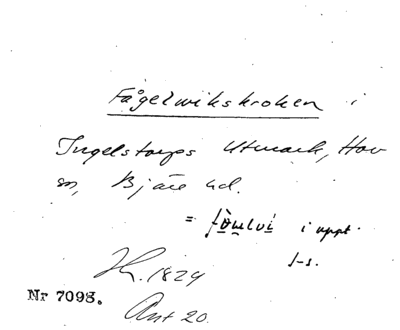 Fågelwikskroken i
Ingelstorps Utmark, Hov
sn, Bjäre hd.
= i uppt.
J-s.
1829
Nr 7098.
Ant 20.